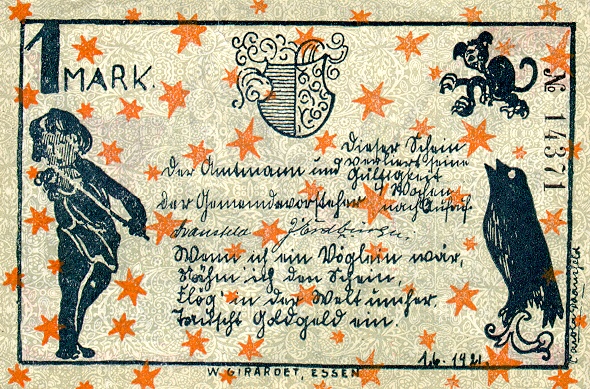 1 MARK.
№ 14371
Dieser Schein
verliert seine
Gültigkeit
4 Wochen
nach Aufruf.
Der Amtmann und
der Gemeindevorsteher
Wenn ich ein Vöglein wär,
Nähm ich den Schein,
Flög in der Welt umher
Tauscht Goldgeld ein.
1.6.1921.
W. GIRARDET, ESSEN